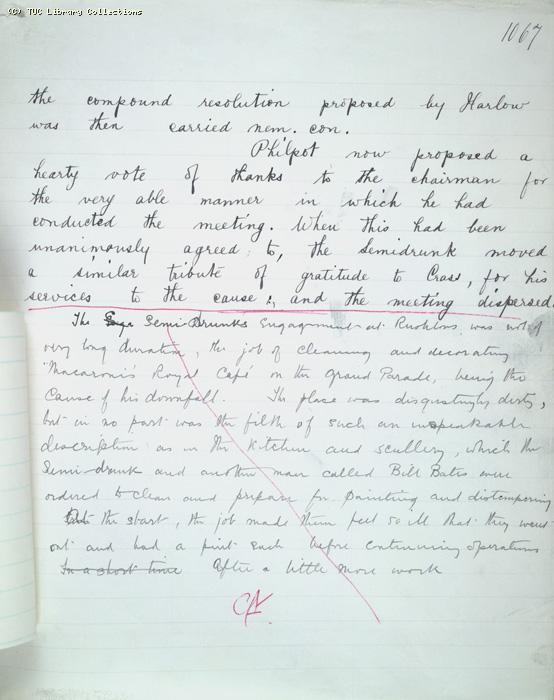 (C) TUC Library Collections
1067
the compound resolution proposed by Harlow
was then carried nem. con.
Philpot now proposed a
hearty vote of thanks to the chairman for
the very able manner in which he had
conducted the meeting. When this had been
unanimously agreed to, the Semidrunk moved
a similar tribute of gratitude to Crass, for his
services to the cause, and the meeting dispersed.
The Semi-Drunks Engagement at Rushtons was not of
very long duration, the job of cleaning and decorating
'Macaroni's Royal Café' on the Grand Parade, being the
Cause of his downfall. The place was disgustingly dirty,
but in no part was the filth of such an unspeakable
description as in the Kitchen and scullery, which the
Semi-drunk and another man called Bill Bates were
ordered to clean and prepare for painting and distempering
the start, the job made them feel so ill that they went
out and had a pint each before continuing operations
In a short time After a little more work